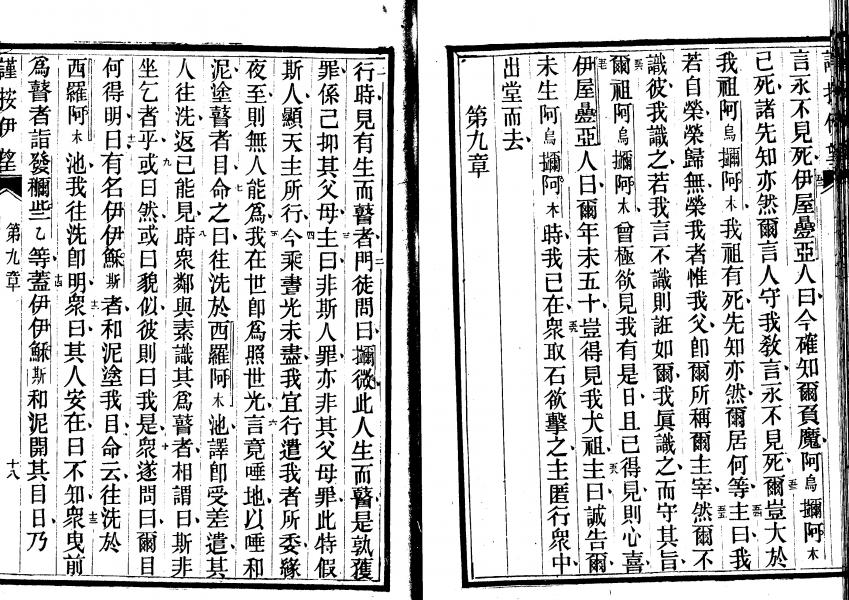 言永不見死伊屋疊亞人曰今確知爾負魔阿烏攦阿木
已死諸先知亦然爾言人守我教言永不見死爾豈大於
我祖阿烏攦阿木我祖有死先知亦然爾居何等主曰我
若自榮榮歸無榮我者惟我父卽爾所稱爾主宰然爾不
識彼我識之若我言不識則誑如爾我眞識之而守其旨
爾祖阿烏攦阿木曾極欲見我有是日且已得見則心喜
伊屋疊亞人曰爾年未五十豈得見我大祖主曰誠告爾
未生阿烏攦阿木時我已在衆取石欲擊之主匿行衆中
出堂而去
第九章
行時見有生而瞽者門徒問曰攦微此人生而瞽是孰獲
罪係己抑其父母主曰非斯人罪亦非其父母罪此特假
斯人顯天主所行今乘晝光未盡我宜行遣我者所委緣
夜至則無人能爲我在世卽爲照世光言竟唾地以唾和
泥塗瞽者目命之曰往洗於西羅阿木池譯卽受差遣其
人往洗返已能見時衆鄰與素識其爲瞽者相謂曰斯非
坐乞者乎或曰然或曰貌似彼則曰我是衆遂問曰爾目
何得明曰有名伊伊穌斯者和泥塗我目命云往洗於
西羅阿木池我往洗卽明衆曰其人安在曰不知衆曳前
爲瞽者詣發穪些乙等蓋伊伊穌斯和泥開其目日乃
謹按伊望
第九章
十八